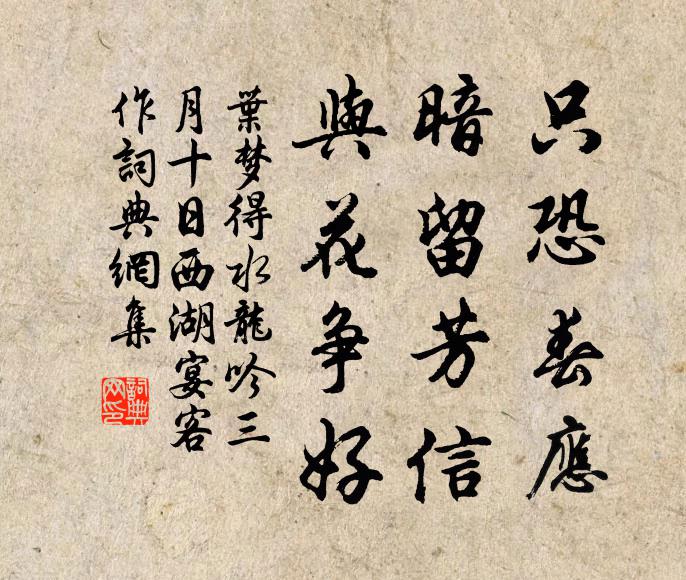 只恐春應
暗留芳信
與花争好
葉梦得水龍吟三
月十日西湖宴客
作詞典網集
詞典
网印